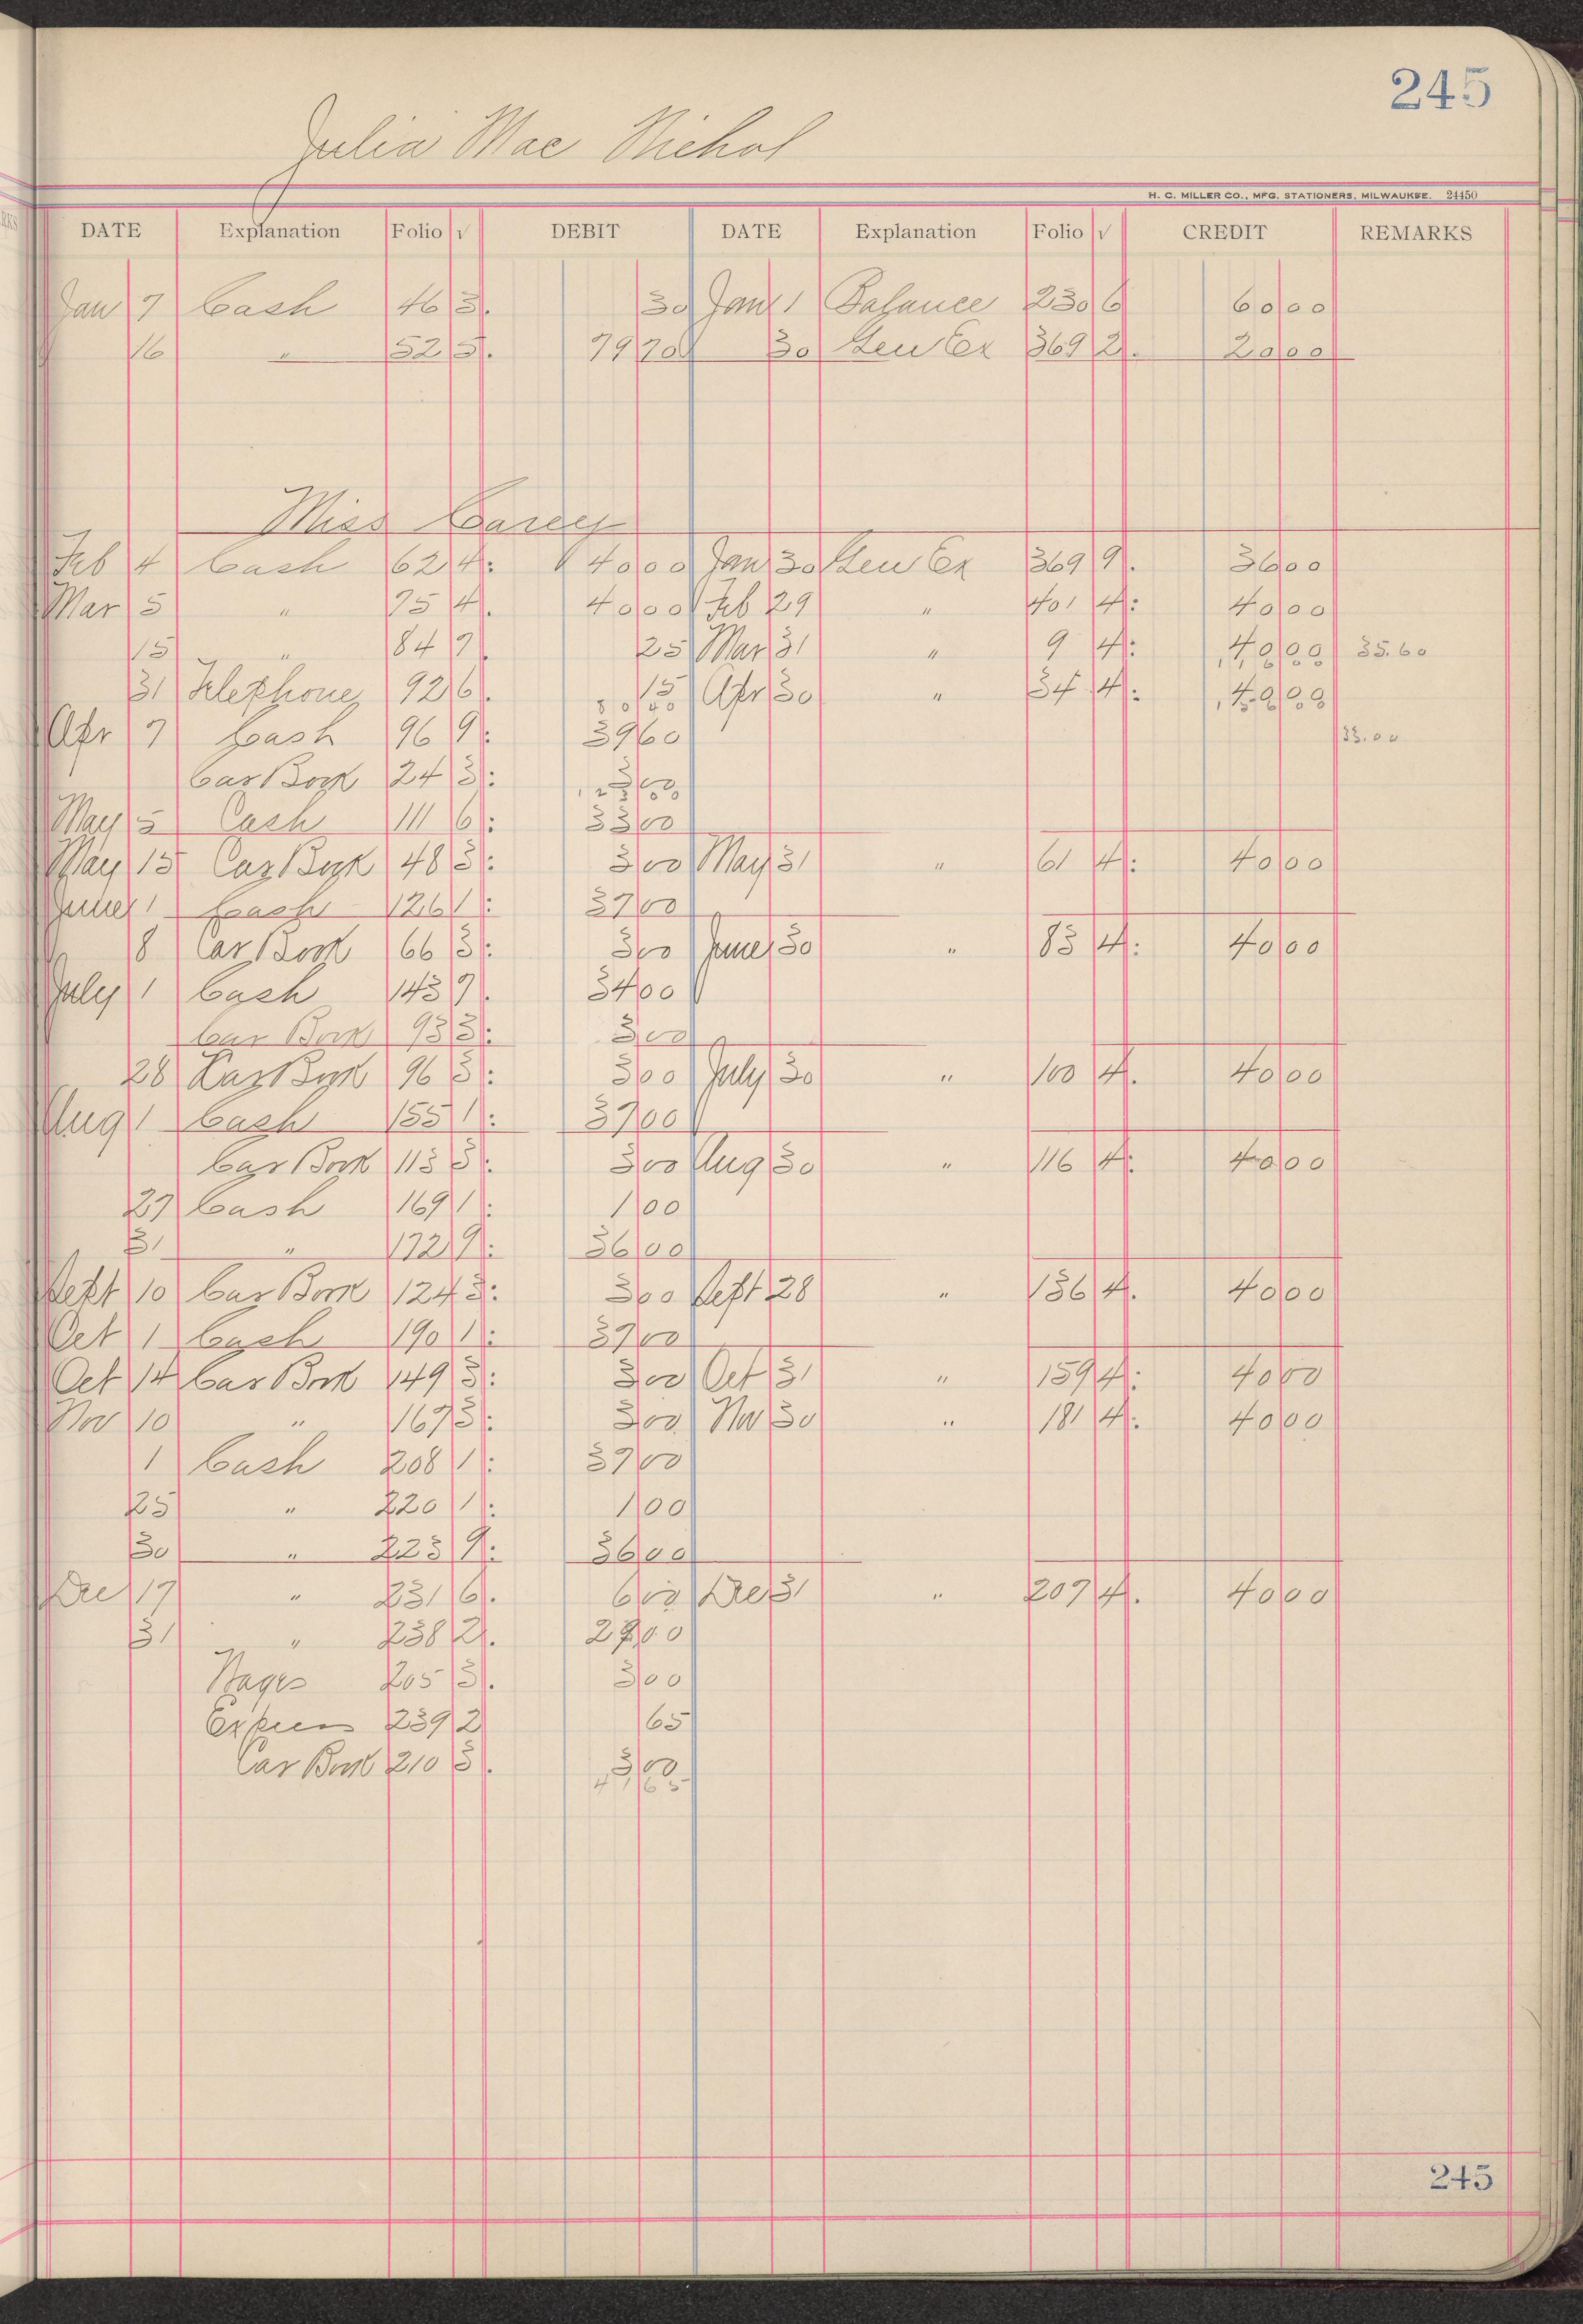 245
Julia Mae Nichol
H. C. MILLER CO., MFG. STATIONERS, MILWAUKEE. 24450
DATE Explanation Folio √ DEBIT DATE Explanation Folio √ CREDIT REMARKS
Jan 7 Cash 46 3. 30 Jan 1 Balance 230 6 60 00
16 " 52 5. 79 70 30 Gen Ex 369 2. 20 00
Miss Carey
Feb 4 Cash 62 4. 40 00 Jan 30 Gen Ex 369 9. 36 00
Mar 5 " 75 4. 40 00 Feb 29 " 401 4. 40 00
15 " 84 7. 25 Mar 31 " 9 4. 40 00 35.60
31 Telephone 92 6. 15 Apr 30 " 34 4. 40 00
80 40
Apr 7 Cash 96 9. 39 60 33.00
Car Book 24 3. 3 00
123 00
May 5 Cash 111 6. 33 00
May 15 Car Book 48 3. 3 00 May 31 " 61 4. 40 00
June 1 Cash 126 1. 37 00
8 Car Book 66 3. 3 00 June 30 " 83 4. 40 00
July 1 Cash 143 9. 34 00
Car Book 93 3. 3 00
28 Car Book 96 3. 3 00 July 30 " 100 4. 40 00
Aug 1 Cash 155 1. 37 00
Car Book 113 3. 3 00 Aug 30 " 116 4. 40 00
27 Cash 169 1. 1 00
31 " 172 9. 36 00
Sept 10 Car Book 124 3. 3 00 Sept 28 " 136 4. 40 00
Oct 1 Cash 190 1. 37 00
Oct 14 Car Book 149 3. 3 00 Oct 31 " 159 4. 40 00
Nov 10 " 167 3. 3 00 Nov 30 " 181 4. 40 00
1 Cash 208 1. 37 00
25 " 220 1. 1 00
30 " 223 9. 36 00
Dec 17 " 231 6. 6 00 Dec 31 " 207 4. 40 00
31 " 238 2. 29 00
Wages 205 3. 3 00
Express 239 2 65
Car Book 210 3. 3 00
41 65
245